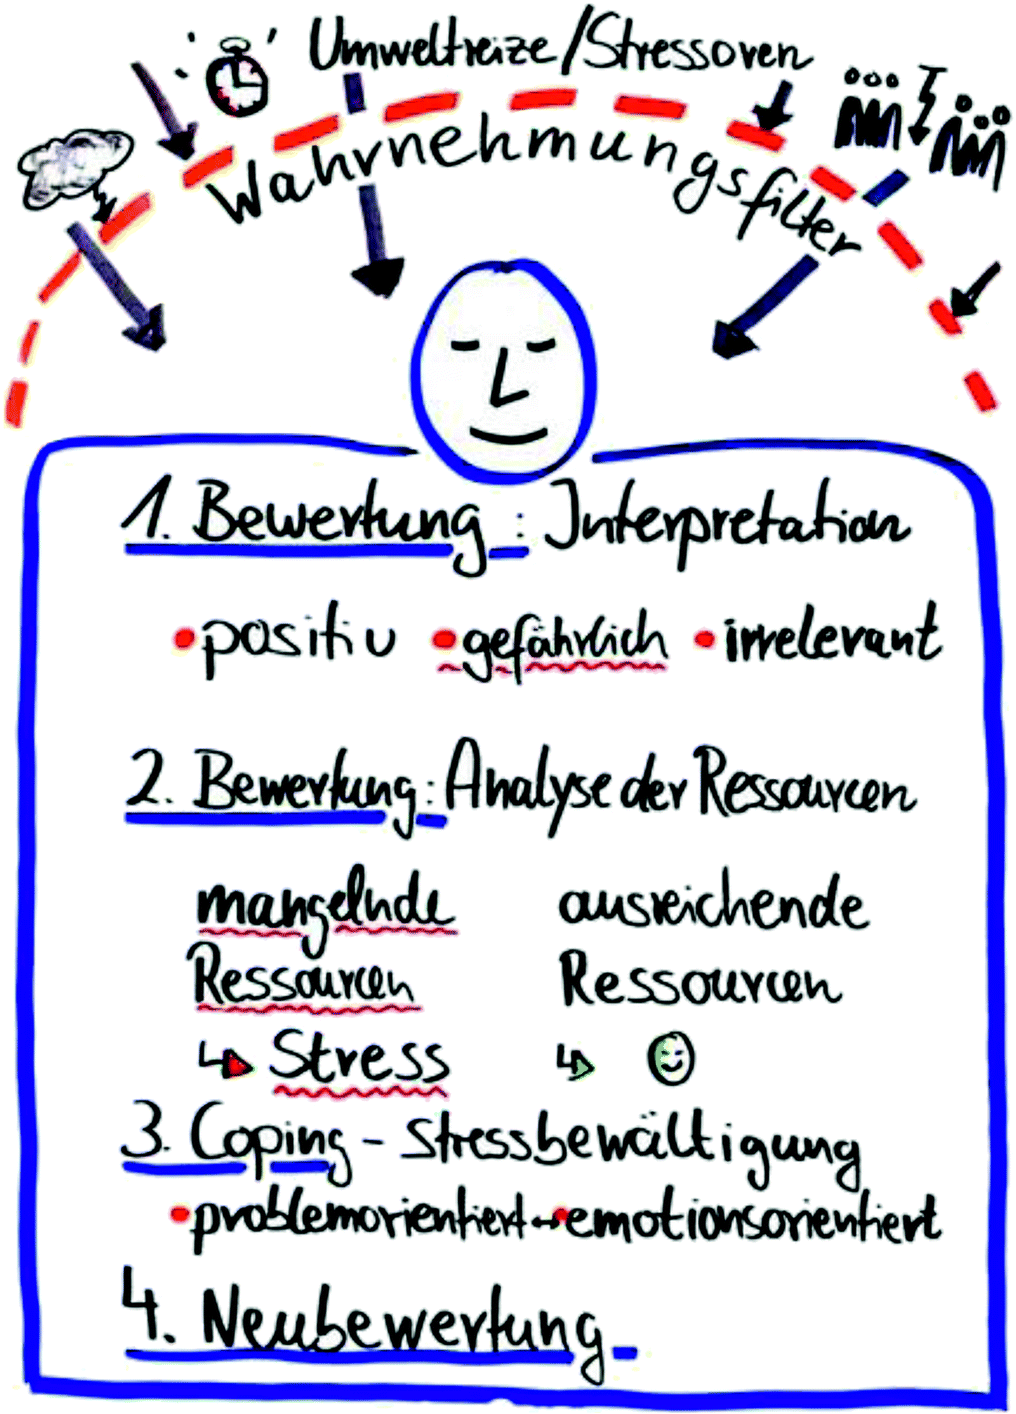 Umweltreize/Stressoren
Wahrnehmungsfilter
1. Bewertung: Interpretation
• positiv • gefährlich • irrelevant
2. Bewertung: Analyse der Ressourcen
mangelnde ausreichende
Ressourcen Ressourcen
↳ Stress ↳ ☺
3. Coping - Stressbewältigung
• problemorientiert ↔ • emotionsorientiert
4. Neubewertung